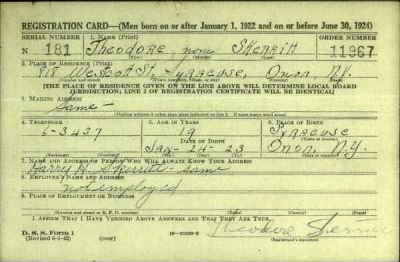 REGISTRATION CARD—(Men born on or after January 1, 1922 and on or before June 30, 1924)
SERIAL NUMBER 1. NAME (Print) ORDER NUMBER
N 181 Theodore none Skerritt 11967
(First) (Middle) (Last)
2. PLACE OF RESIDENCE (Print)
918 Wescott St. Syracuse, Onon. N.Y.
[THE PLACE OF RESIDENCE GIVEN ON THE LINE ABOVE WILL DETERMINE LOCAL BOARD
JURISDICTION; LINE 2 OF REGISTRATION CERTIFICATE WILL BE IDENTICAL]
3. MAILING ADDRESS
Same
4. TELEPHONE 5. AGE IN YEARS 6. PLACE OF BIRTH
6-3437 19 Syracuse
DATE OF BIRTH
Jan-24-23 Onon. N.Y.
7. NAME AND ADDRESS OF PERSON WHO WILL ALWAYS KNOW YOUR ADDRESS
Harry Skerritt - same
8. EMPLOYER'S NAME AND ADDRESS
not employed
9. PLACE OF EMPLOYMENT OR BUSINESS
I AFFIRM THAT I HAVE VERIFIED ABOVE ANSWERS AND THAT THEY ARE TRUE.
D. S. S. Form 1
(over)
Theodore